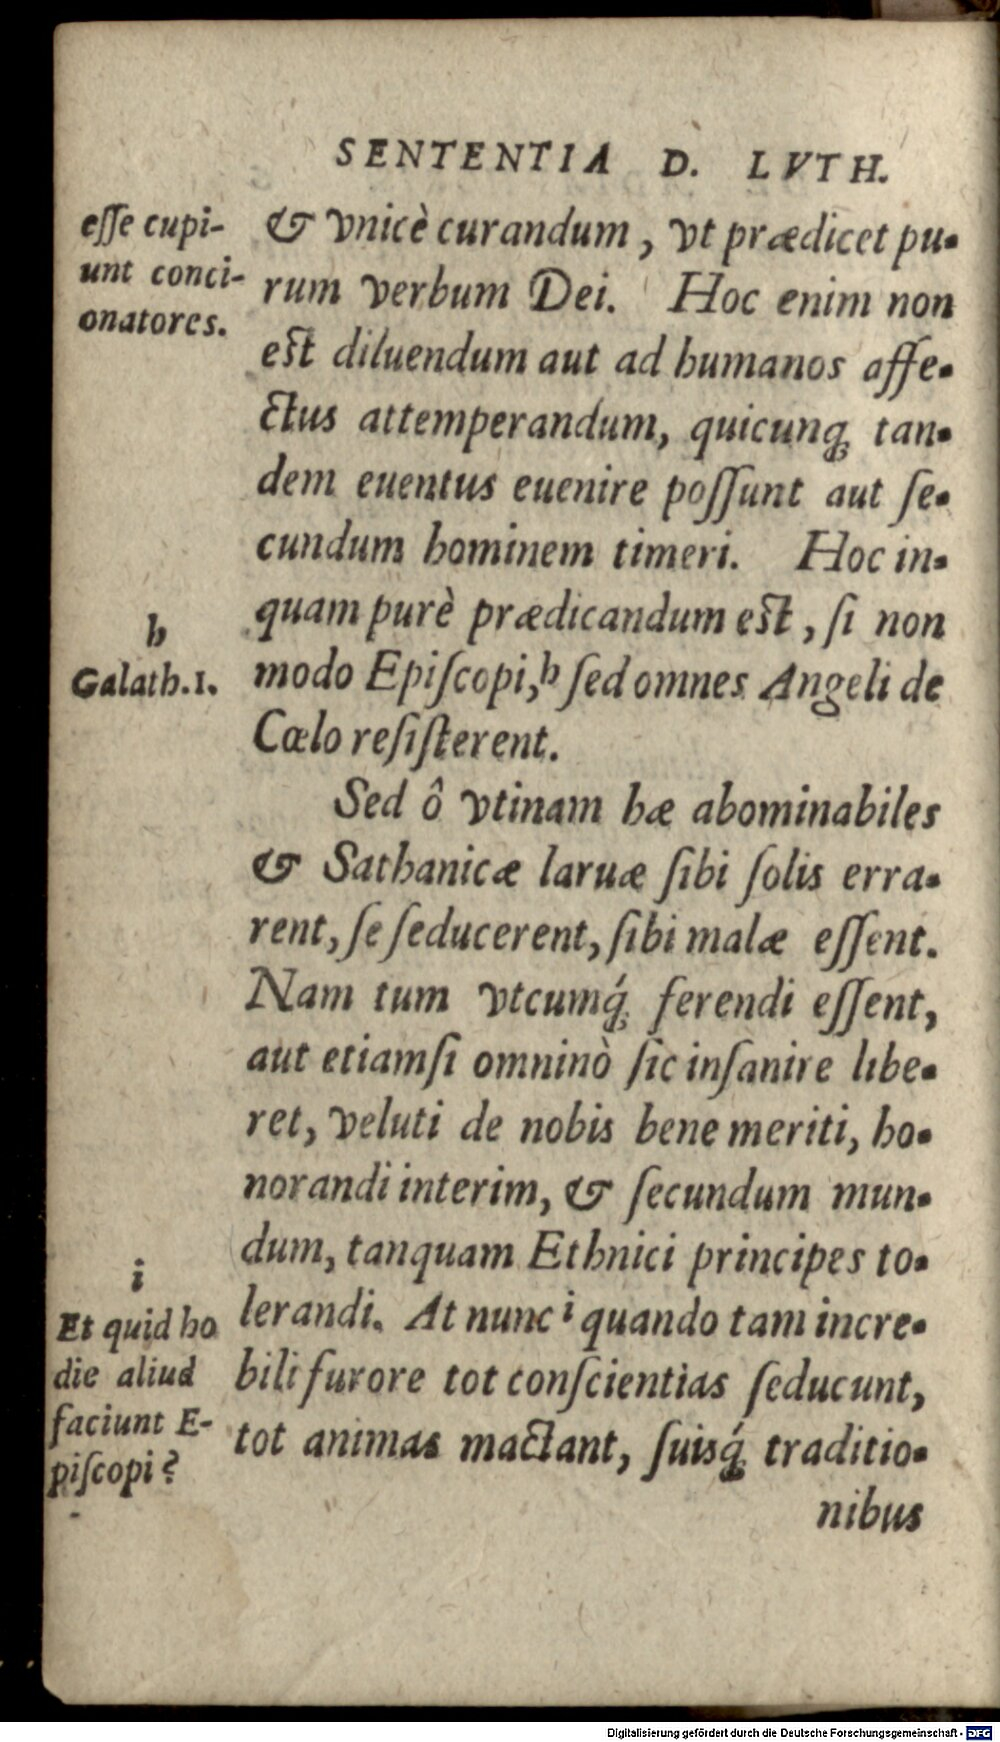 SENTENTIA D. LVTH.
eſſe cupi-
unt conci-
onatores.
& vnicè curandum, vt prædicet pu-
rum verbum Dei. Hoc enim non
est diluendum aut ad humanos affe-
ctus attemperandum, quicunq; tan-
dem euentus euenire poſſunt aut ſe-
cundum hominem timeri. Hoc in-
quam purè prædicandum est, ſi non
modo Epiſcopi,h ſed omnes Angeli de
Cœlo reſiſterent.
h
Galath.1.
Sed ô vtinam hæ abominabiles
& Sathanicæ laruæ ſibi ſolis erra-
rent, ſe ſeducerent, ſibi malæ eſſent.
Nam tum vtcumq́; ferendi eſſent,
aut etiamſi omninò ſic inſanire libe-
ret, veluti de nobis bene meriti, ho-
norandi interim, & ſecundum mun-
dum, tanquam Ethnici principes to-
lerandi. At nunc i quando tam incre-
bili furore tot conſcientias ſeducunt,
tot animas mactant, ſuisq́; traditio-
i
Et quid ho
die aliud
faciunt E-
piſcopi?
nibus
Digitalisierung gefördert durch die Deutsche Forschungsgemeinschaft - DFG